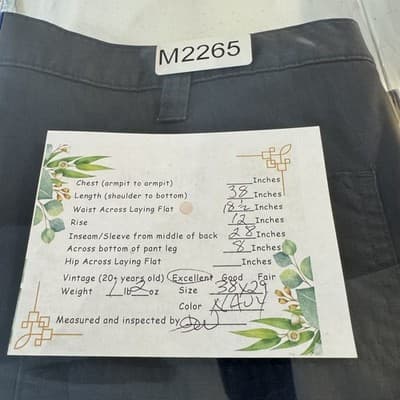 M2265
Chest (armpit to armpit) ______Inches
Length (shoulder to bottom) 38 Inches
Waist Across Laying Flat 18 1/2 Inches
Rise 12 Inches
Inseam/Sleeve from middle of back 28 Inches
Across bottom of pant leg 8 Inches
Hip Across Laying Flat ______Inches
Vintage (20+ years old) Excellent Good Fair
Weight 1 lb 2 oz Size 38x29
Color NAVY
Measured and inspected by